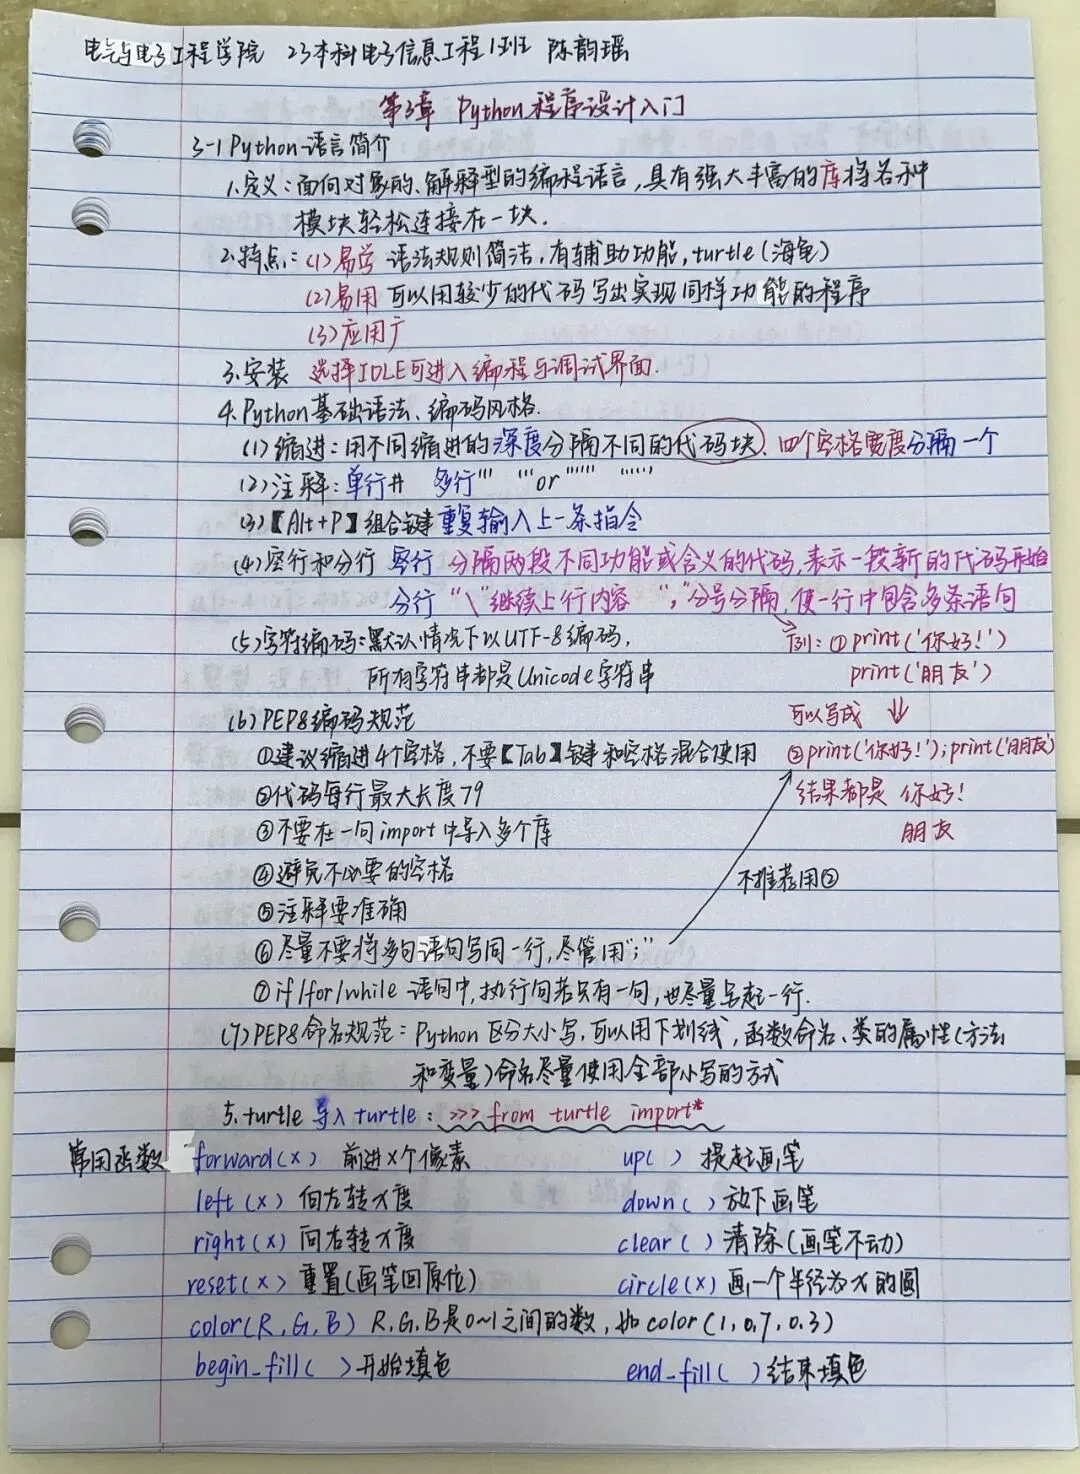 电气与电子工程学院 23本科电子信息工程1班 陈韵瑶
第3章 Python程序设计入门
3-1 Python语言简介
1.定义:面向对象的、解释型的编程语言,具有强大丰富的库将各种
模块轻松连接在一块.
2.特点:(1)易学 语法规则简洁,有辅助功能,turtle(海龟)
(2)易用 可以用较少的代码写出实现同样功能的程序
(3)应用广
3.安装 选择IDLE可进入编程与调试界面.
4.Python基础语法、编码风格.
(1)缩进:用不同缩进的深度分隔不同的代码块. 四个空格宽度分隔一个
(2)注释:单行# 多行''' '''or""" """
(3)【Alt+P】组合键 重复输入上一条指令
(4)空行和分行 空行 分隔两段不同功能或含义的代码,表示一段新的代码开始
分行 "\"继续上行内容 ";"分号分隔,使一行中包含多条语句
(5)字符编码:默认情况下以UTF-8编码, 例:①print('你好!')
所有字符串都是Unicode字符串 print('朋友')
(6)PEP8编码规范 可以写成
①建议缩进4个空格,不要【Tab】键和空格混合使用 ②print('你好!');print('朋友')
②代码每行最大长度79 结果都是 你好!
③不要在一句import中导入多个库 朋友
④避免不必要的空格 不推荐用②
⑤注释要准确
⑥尽量不要将多句语句写同一行,尽管用";"
⑦if/for/while 语句中,执行句若只有一句,也尽量另起一行.
(7)PEP8命名规范:Python区分大小写,可以用下划线,函数命名、类的属性(方法
和变量)命名尽量使用全部小写的方式
5.turtle 导入turtle: >>> from turtle import*
常用函数 forward(x) 前进x个像素 up( ) 提起画笔
left(x) 向左转x度 down( ) 放下画笔
right(x) 向右转x度 clear( ) 清除(画笔不动)
reset(x) 重置(画笔回原位) circle(x) 画一个半径为x的圆
color(R,G,B) R,G,B是0~1之间的数,如color(1,0.7,0.3)
begin_fill( )开始填色 end_fill( )结束填色